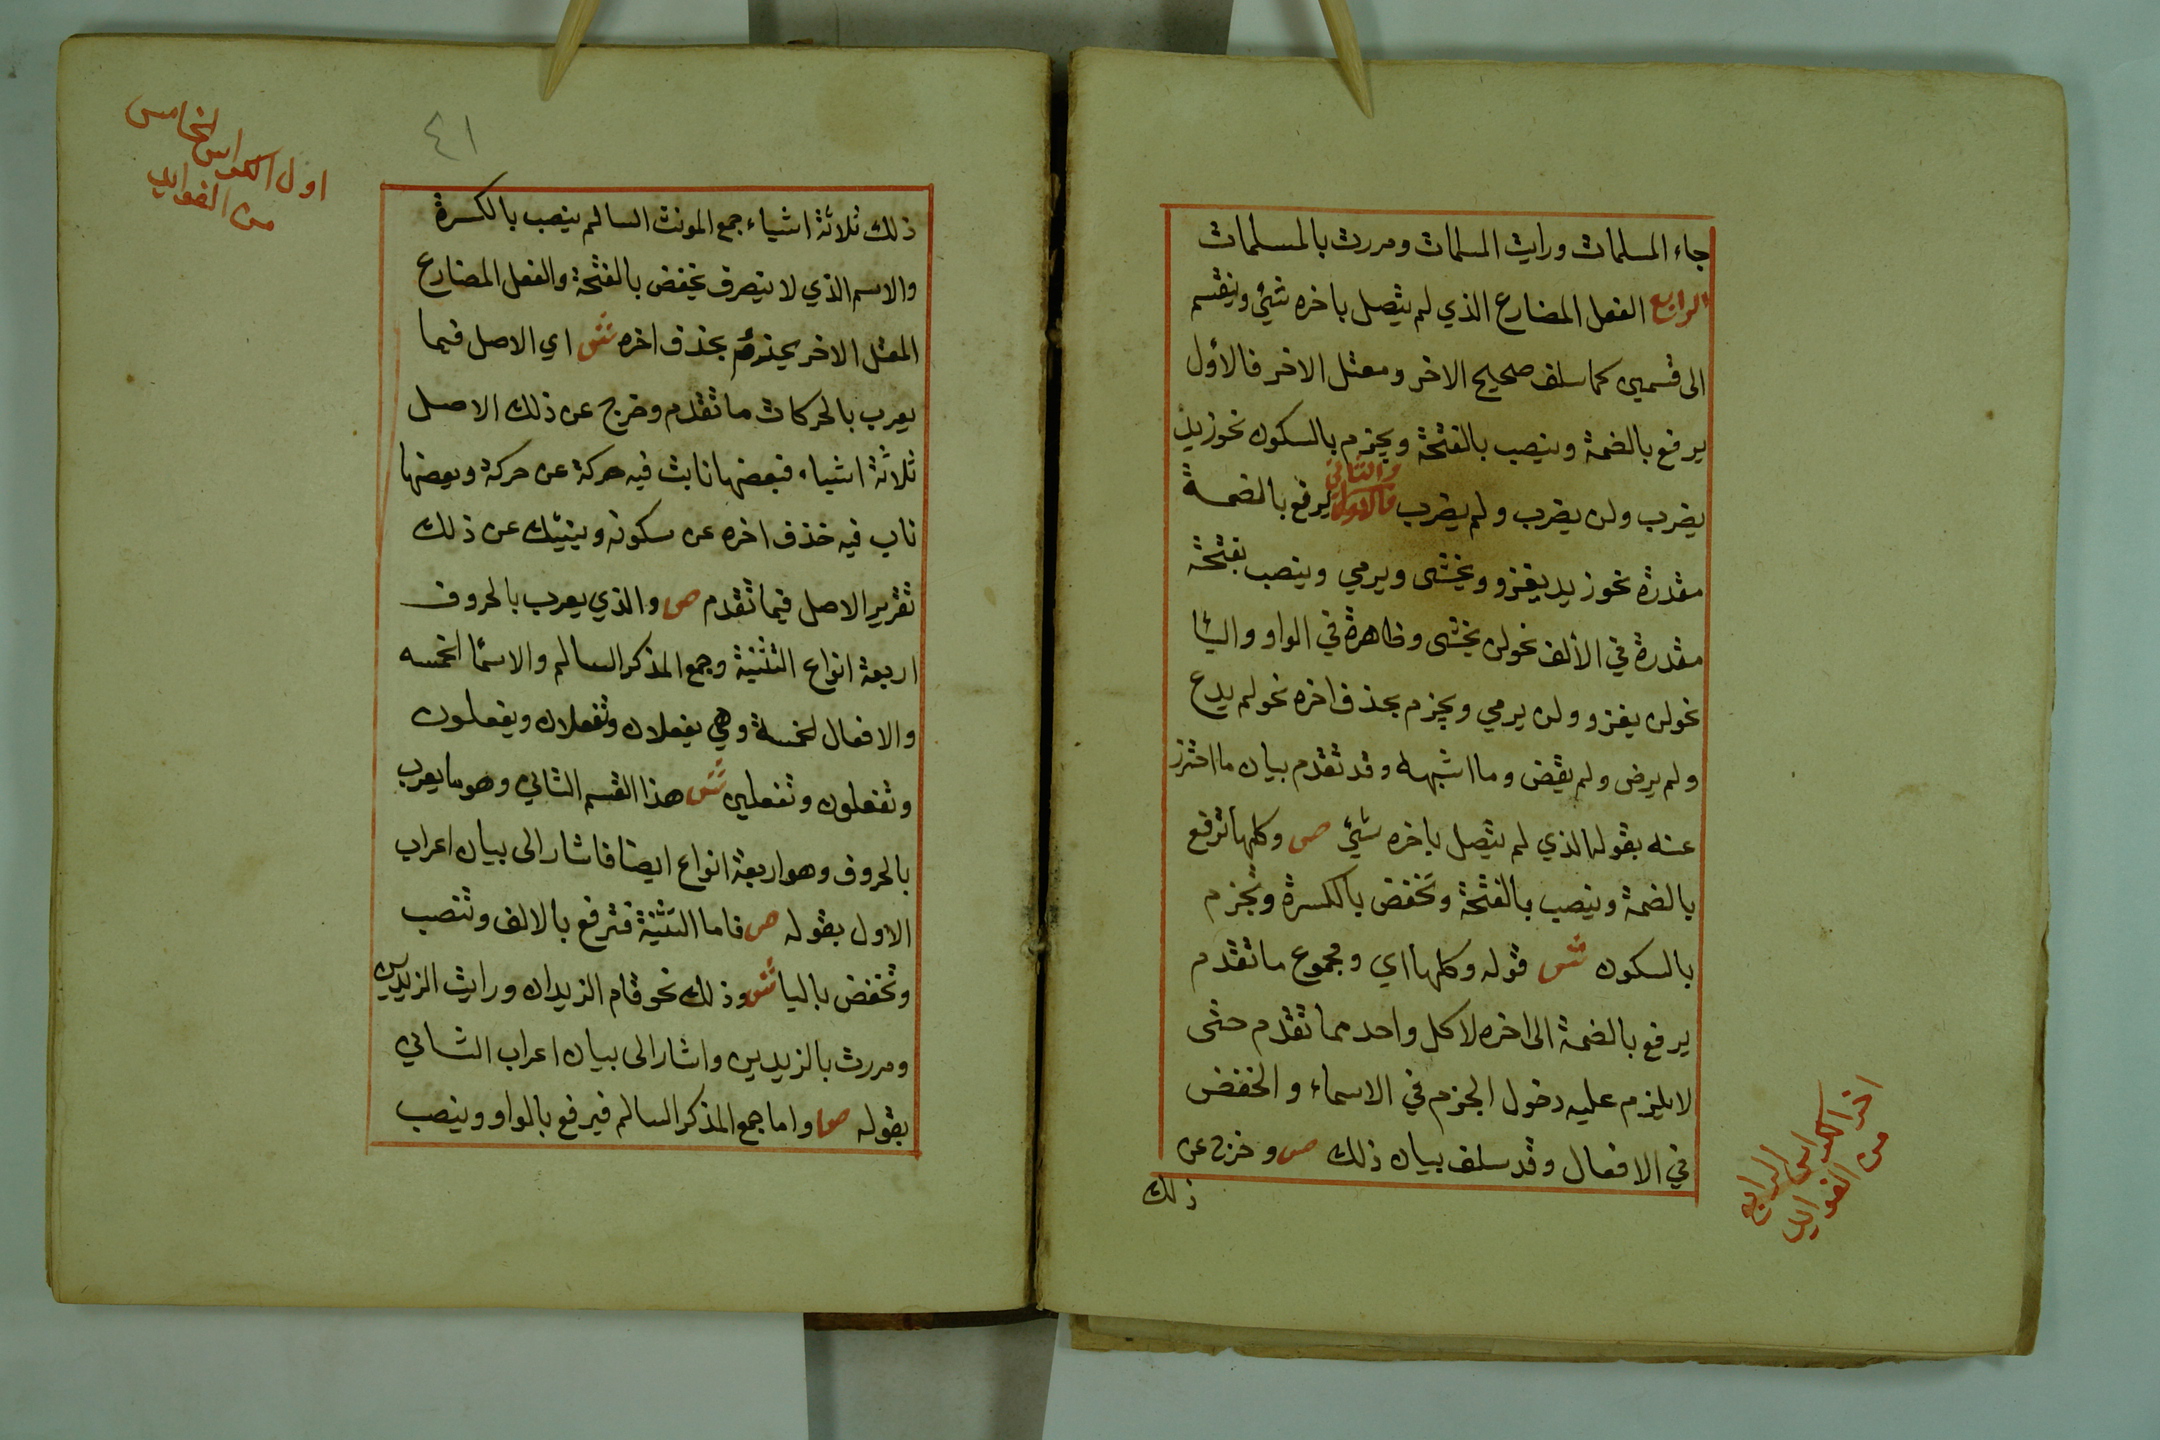 جاء المسلمات ورايت المسلمات ومررت بالمسلمات
الرابع الفعل المضارع الذي لم يتصل باخره شيئ وينقسم
الى قسمين كما سلف صحيح الاخر ومعتل الاخر فالأول
يرفع بالضمة وينصب بالفتحة ويجزم بالسكون نحو زيد
والثاني
يضرب ولن يضرب ولم يضرب فالاول يرفع بالضمة
مقدرة نحو زيد يغزو ويخشى ويرمي وينصب بفتحة
مقدرة في الألف نحو لن يخشى وظاهرة في الواو واليا
نحو لن يغزو ولن يرمي ويجزم بحذف اخره نحو لم يدع
ولم يرض ولم يقض وما اشبهه وقد تقدم بيان ما احترز
عنه بقوله الذي لم يتصل باخره شيئ ص وكلها ترفع
بالضمة وينصب بالفتحة وتخفض بالكسرة وتجزم
بالسكون ش قوله وكلها اي ومجموع ما تقدم
يرفع بالضمة الى اخره لا كل واحد مما تقدم حتى
لا يلزم عليه دخول الجزم في الاسماء والخفض
في الافعال وقد سلف بيان ذلك ص وخرج عن
ذلك
اخر الكراس الرابع
من الفوايد
اول الكراس الخامس
من الفوايد
٤١
ذلك ثلاثة اشياء جمع المونث السالم ينصب بالكسرة
والاسم الذي لا ينصرف يخفض بالفتحة والفعل المضارع
المعتل الاخر يجزم بحذف اخره ش اي الاصل فيما
يعرب بالحركات ما تقدم وخرج عن ذلك الاصل
ثلاثة اشياء فبعضها نابت فيه حركة عن حركة وبعضها
ناب فيه حذف اخره عن سكونه وينبئك عن ذلك
تقرير الاصل فيما تقدم ص والذي يعرب بالحروف
اربعة انواع التثنية وجمع المذكر السالم والاسما الخمسه
والافعال الخمسة وهي يفعلان وتفعلان ويفعلون
وتفعلون وتفعلين ش هذا القسم الثاني وهو ما يعرب
بالحروف وهو اربعة انواع ايضا فاشار الى بيان اعراب
الاول بقوله ص فاما التثنية فترفع بالالف وتنصب
وتخفض باليا ش وذلك نحو قام الزيدان ورايت الزيدين
ومررت بالزيدين واشار الى بيان اعراب الثاني
بقوله ص واما جمع المذكر السالم فيرفع بالواو وينصب